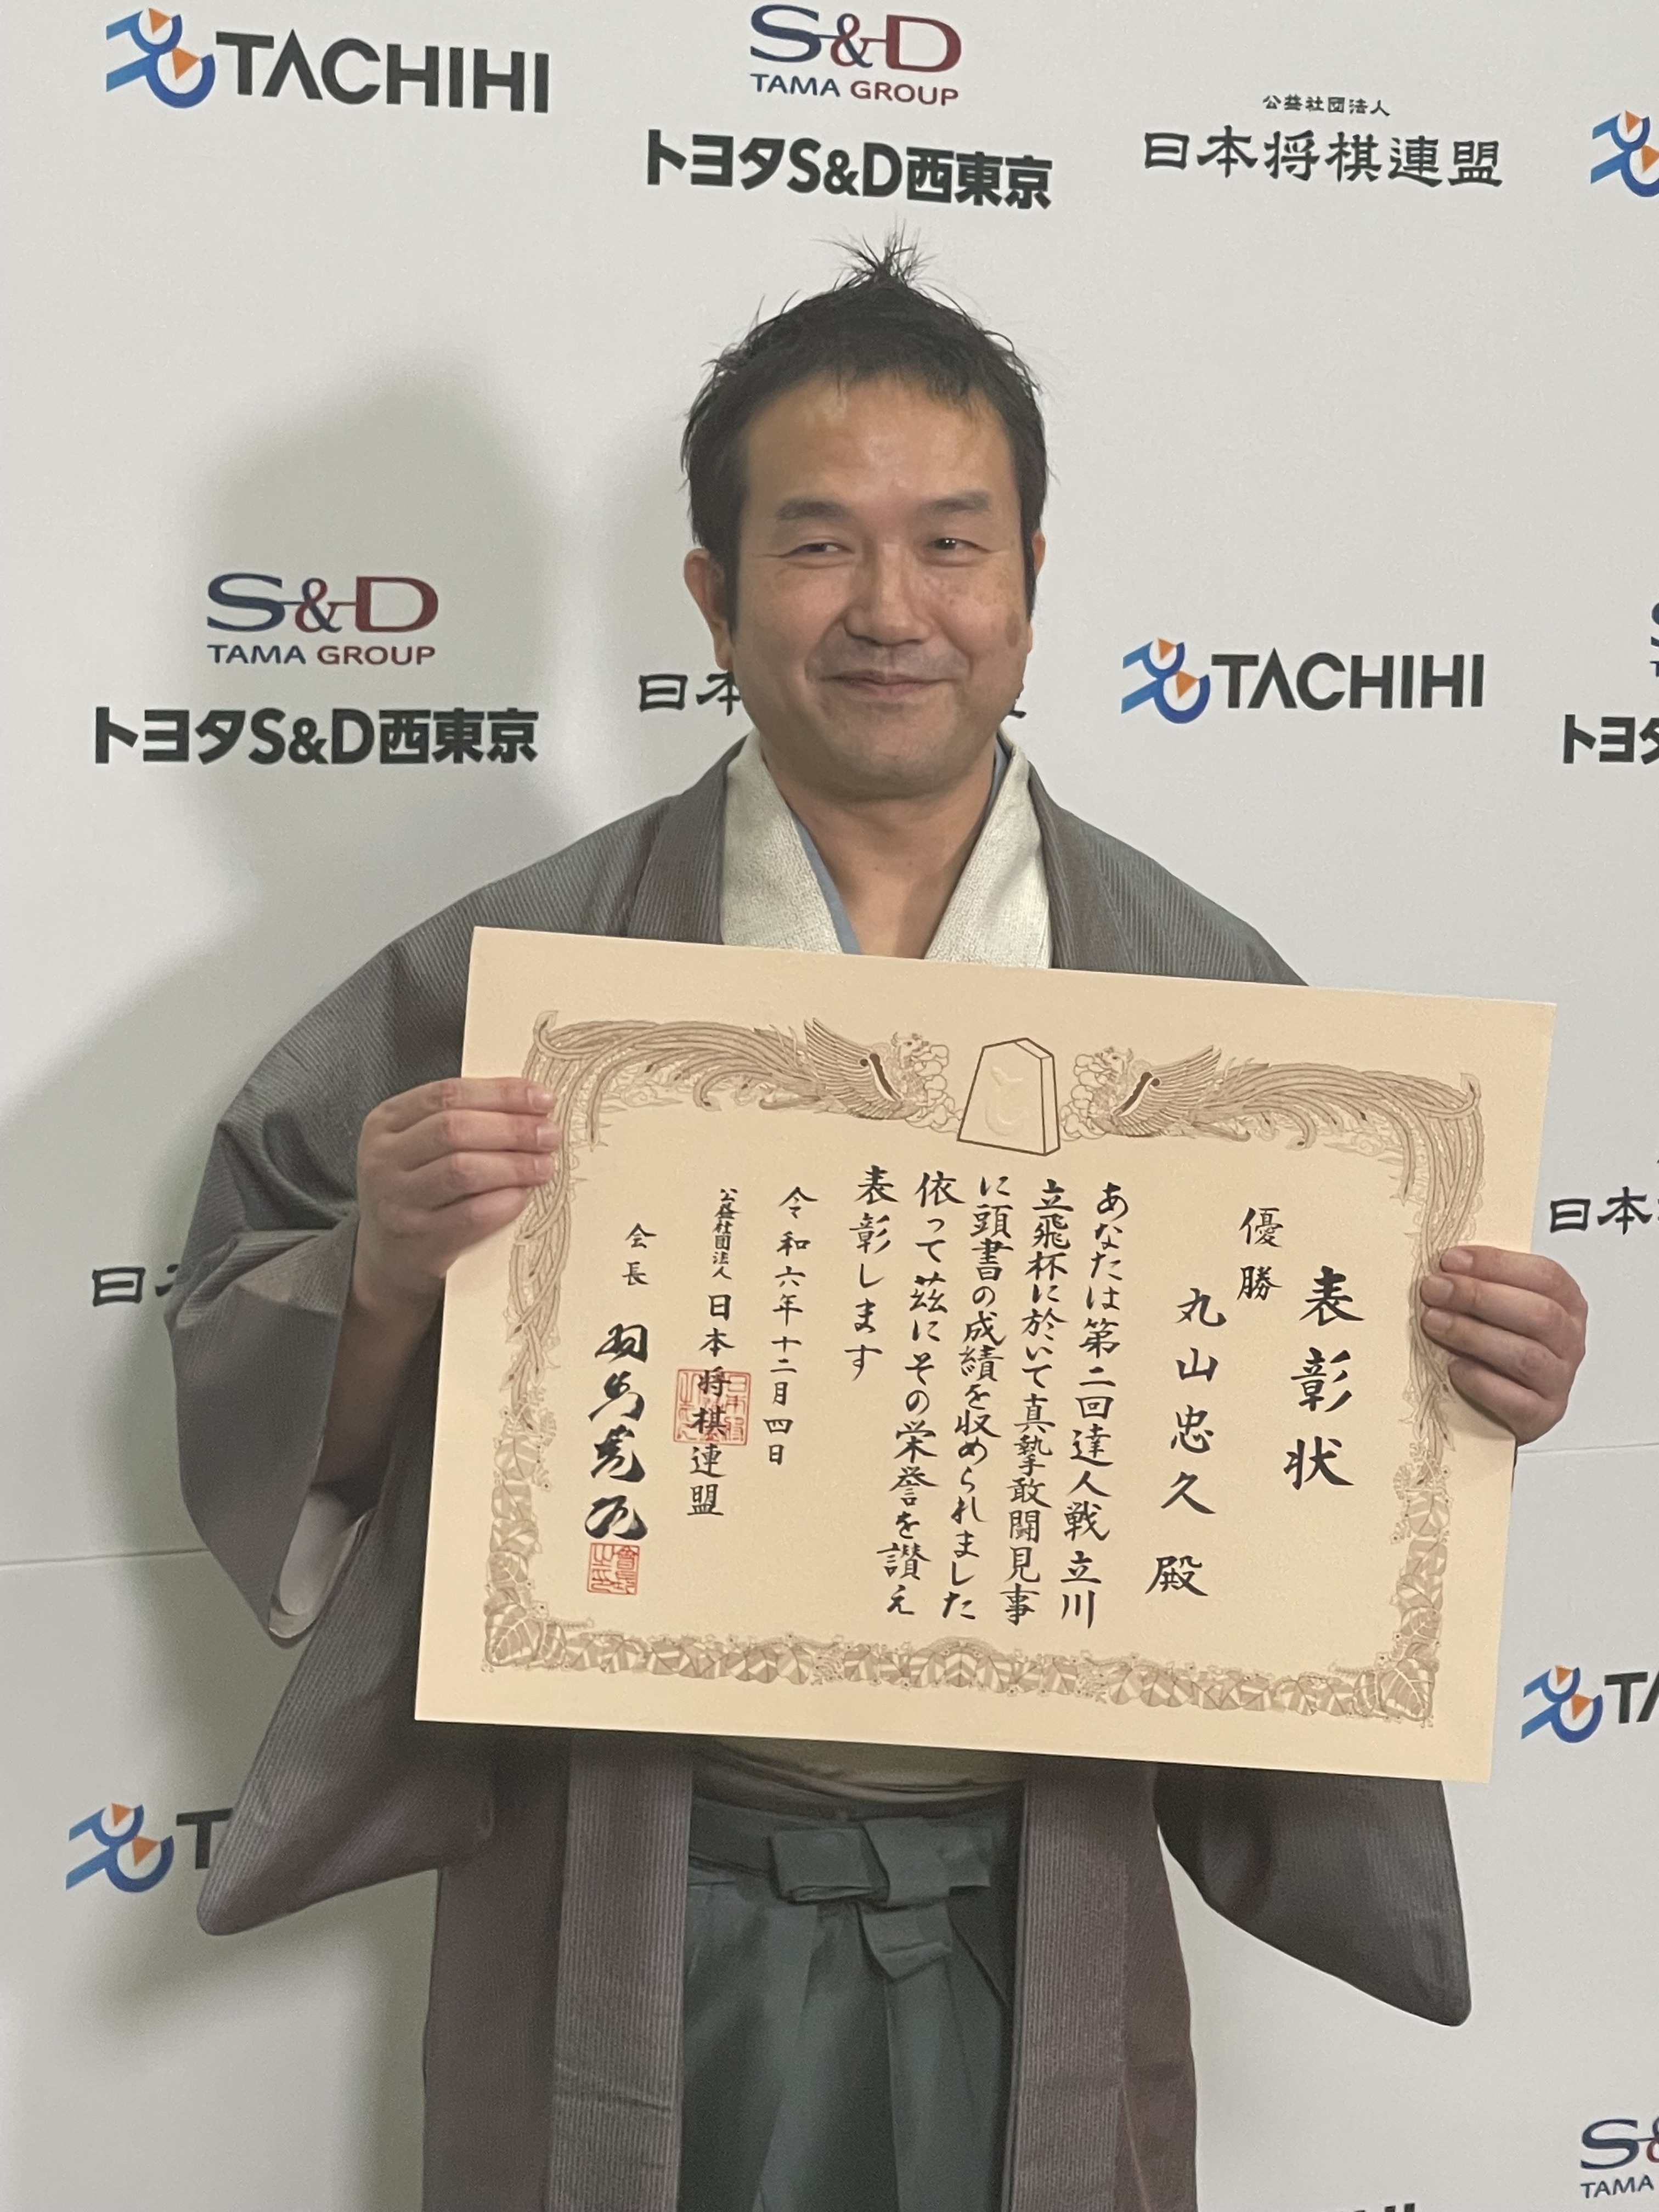 TACHIHI
S&D
TAMA GROUP
トヨタS&D西東京
公益社団法人
日本将棋連盟
S&D
TAMA GROUP
トヨタS&D西東京
日本
TACHIHI
トヨタ
表彰状
優勝
丸山忠久 殿
あなたは第二回達人戦立川
立飛杯に於いて真摯敢闘見事
に頭書の成績を収められました
依って茲にその栄誉を讃え
表彰します
令和六年十二月四日
公益社団法人 日本将棋連盟
会長 羽生善治
日本
日本
TA
T
S&
TAMA